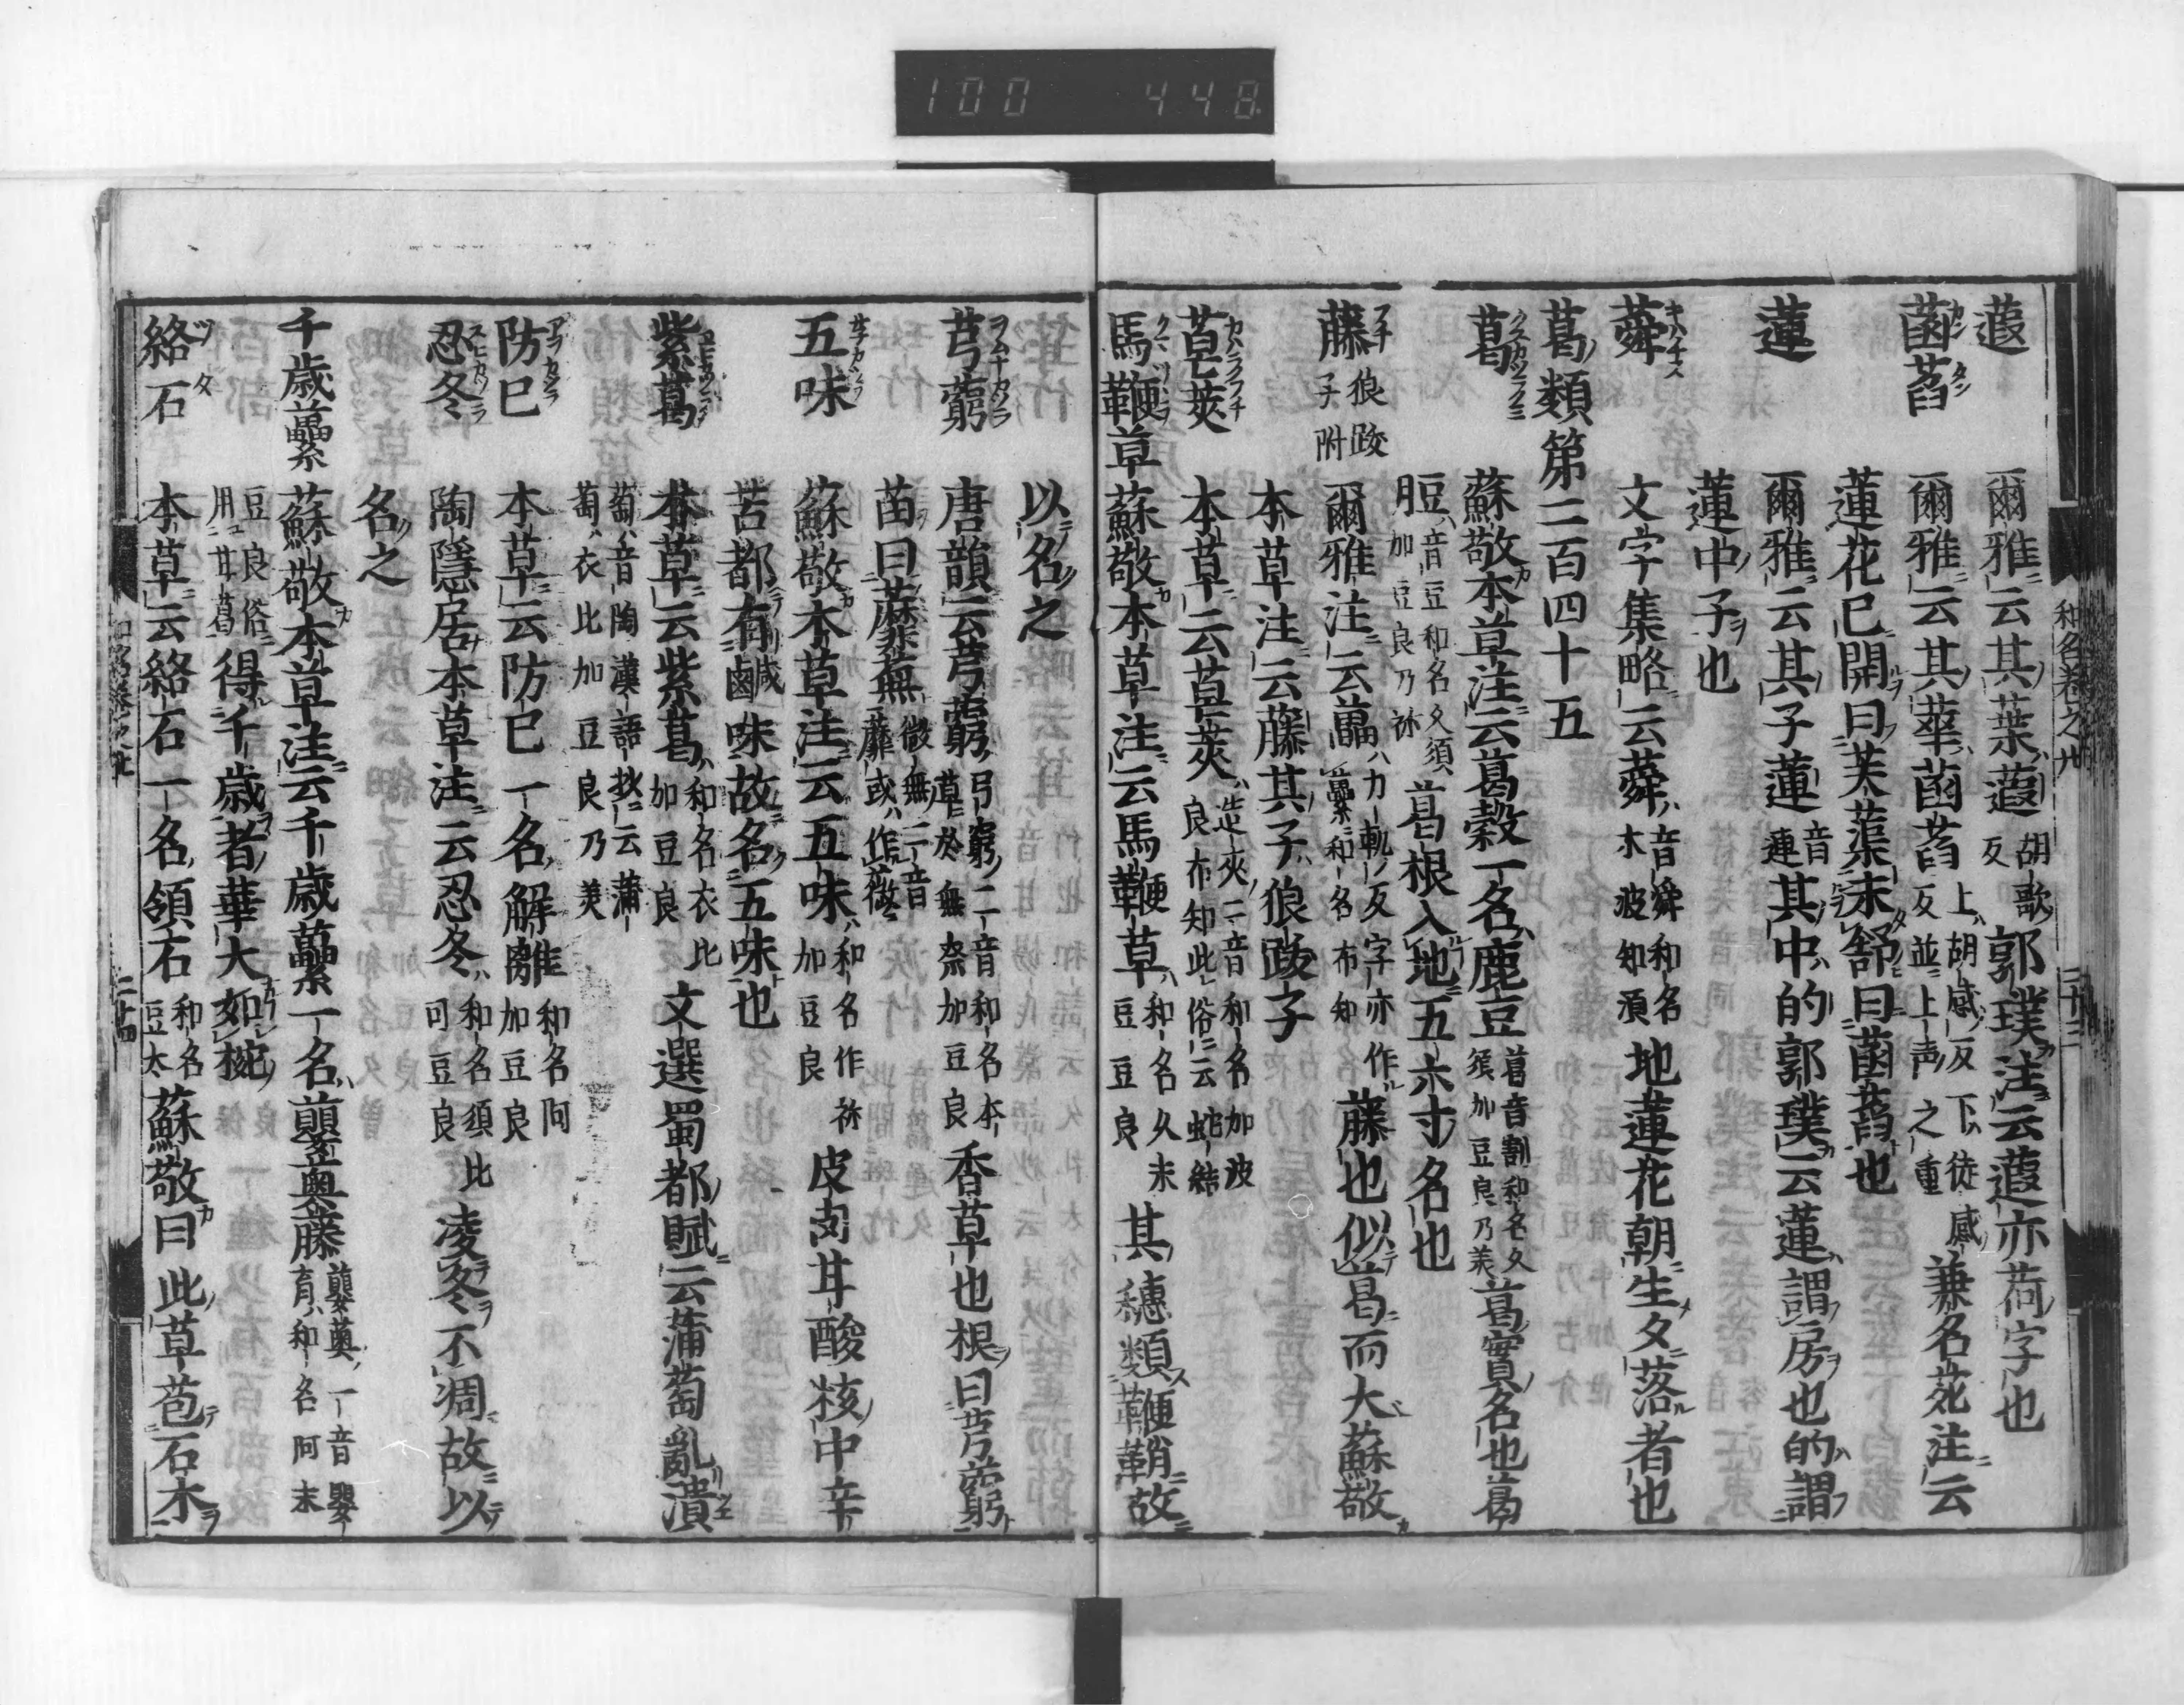 100 448
和名卷之廿 二十三
蕸 爾雅云其葉蕸 胡歌反 郭璞注云蕸亦荷字也
菡萏 爾雅云其華菡萏 上胡感反下徒感反並上声之重 兼名苑注云
蓮花已開曰芙蕖未舒曰菡萏也
蓮 爾雅云其子蓮 音連 其中的郭璞云蓮謂房也的謂
蓮中子也
蕣 文字集略云蕣 音舜和名木波知須 地蓮花朝生夕落者也
葛類第二百四十五
葛 蘇敬本草注云葛穀一名鹿豆 葛音割和名久須加豆良乃美 葛實名也葛
脰 音豆和名久須加豆良乃祢 葛根入地五六寸名也
藤 狼跋子附 爾雅注云藟 力軌反字亦作虆和名布知 藤也似葛而大蘇敬
本草注云藤其子狼跋子
皂莢 本草云皂莢 造夾二音和名加波良布知此俗云蛇結
馬鞭草 蘇敬本草注云馬鞭草 和名久末豆豆良 其穗類鞭鞘故
以名之
芎藭 唐韻云芎藭 弓窮二音和名本草於無奈加豆良 香草也根曰芎藭
苗曰蘼蕪 微無二音蘼或作薇
五味 蘇敬本草注云五味 和名作祢加豆良 皮肉甘酸核中辛
苦都有鹹味故名五味也
紫葛 本草云紫葛 和名衣比加豆良 文選蜀都賦云蒲萄亂潰
萄音陶漢語抄云蒲萄衣比加豆良乃美
防已 本草云防已一名解離 和名阿加豆良
忍冬 陶隱居本草注云忍冬 和名須比可豆良 凌冬不凋故以
名之
千歳虆 蘇敬本草注云千歳虆一名蘡薁藤 蘡薁嬰育一音和名阿末
豆良俗用甘葛 得千歳者華大如椀
絡石 本草云絡石一名領石 和名豆太 蘇敬曰此草苞石木
二十四